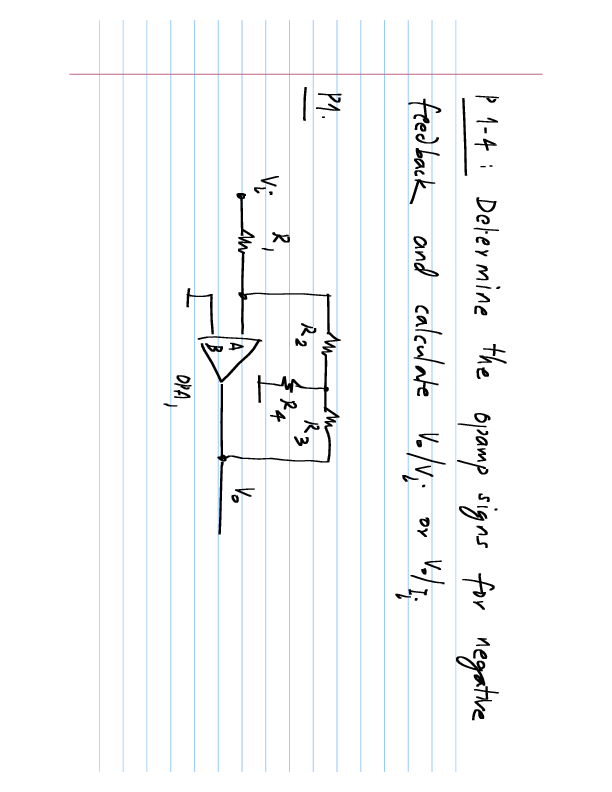 P 1-4 : Determine the opamp signs for negative
feedback and calculate Vo/Vi or Vo/Ii
P1.
R2 R3
R4
R1
Vi
A
B
Vo
OPA1